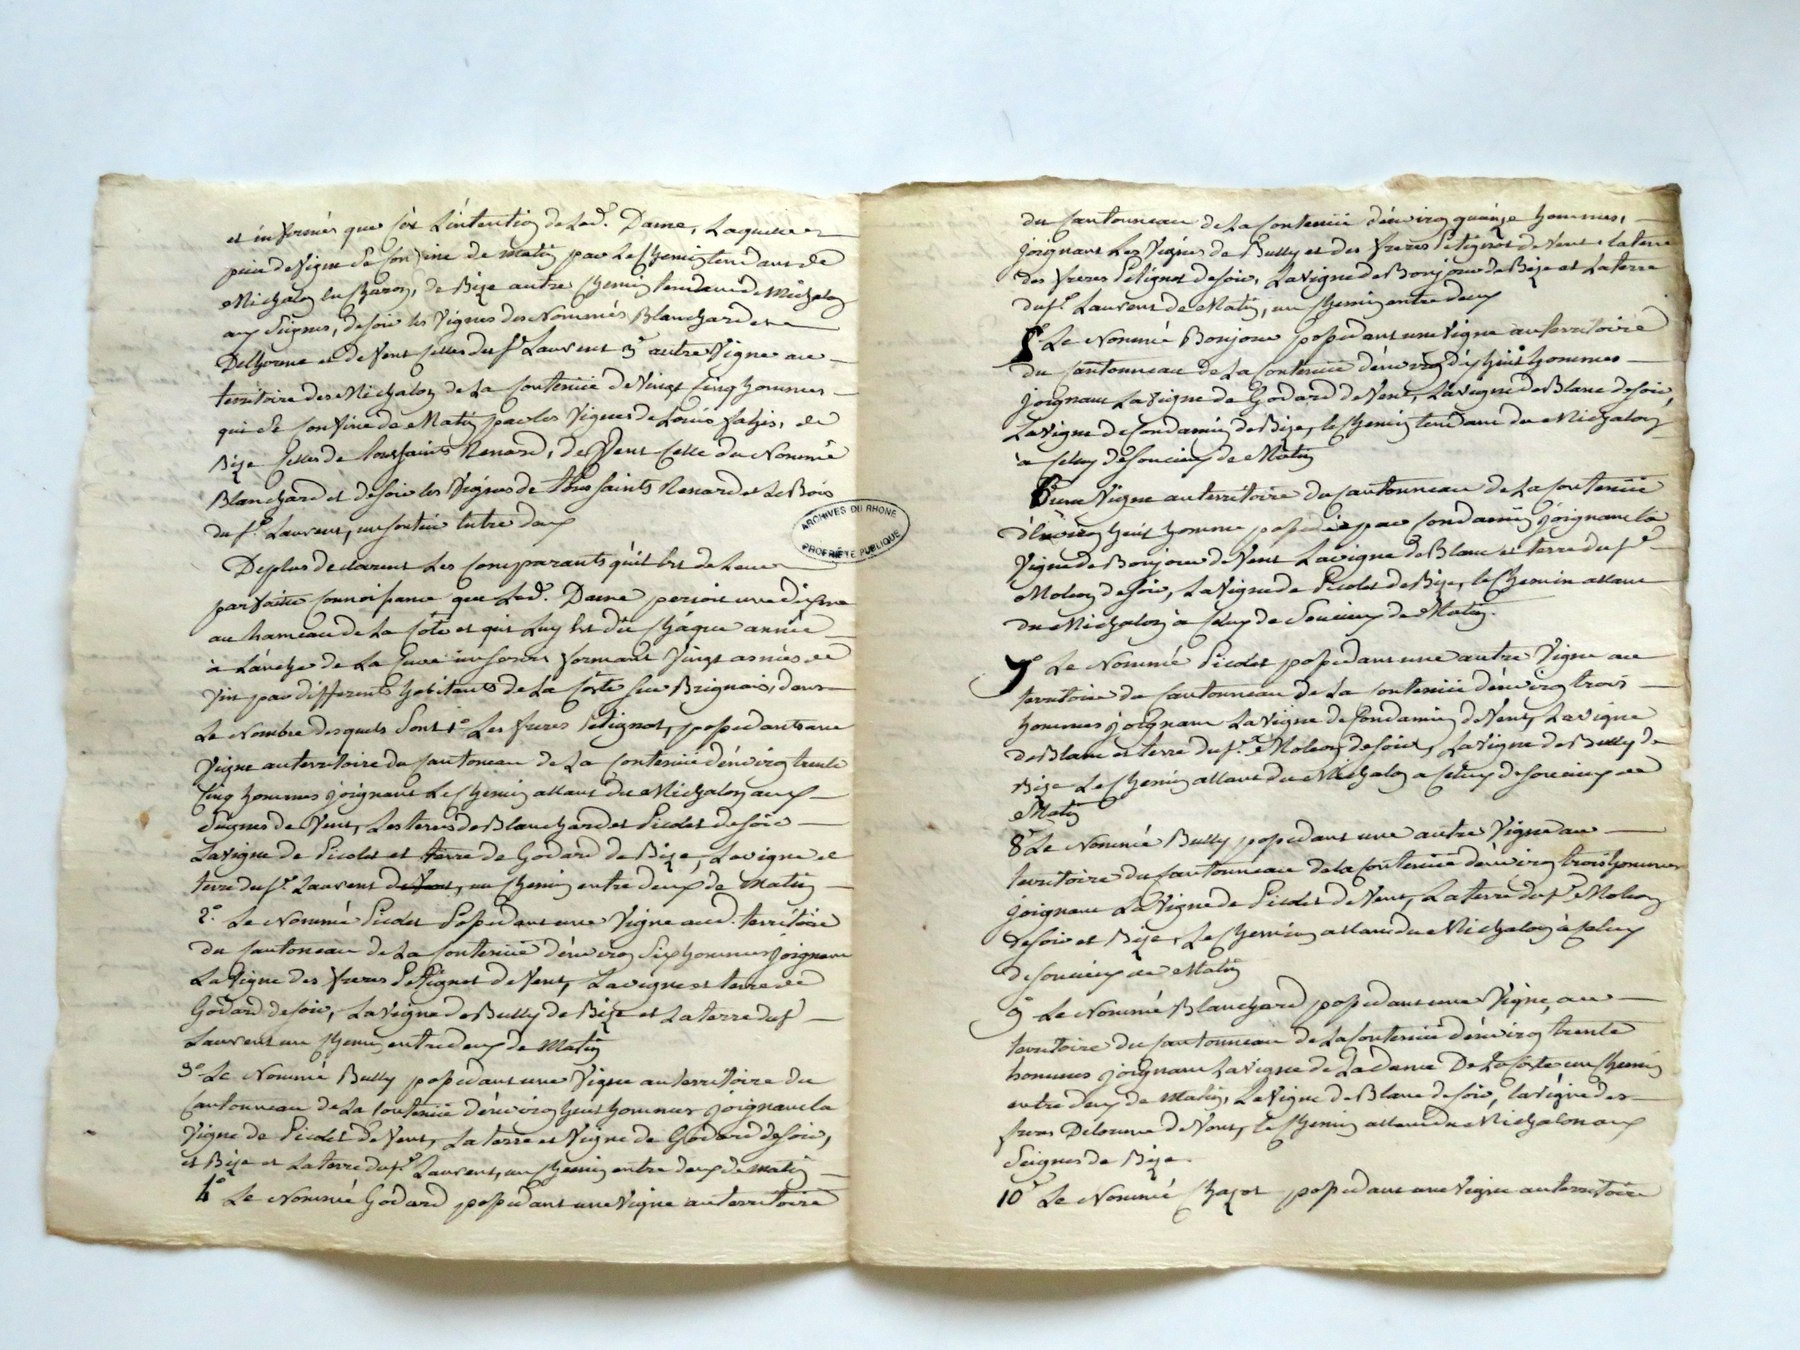 et informés que sise L'intention de Lad.e Dame, Laquelle
pièce de Vigne Se Confine de matin par Le Chemin tendant de
Michalon en Charon, de Bize autre Chemin tendant de Michalon
aux Seignes, de soir les Vignes des Nommés Blanchard et
Delhorme et de Vent Celles du s.r Laurent 3.e autre Vigne au
territoire des Michalon de La Contenüe de Vingt Cinq hommes
qui Se Confine de Matin par les Vignes de Loüis fahis, de
Bize Celles de toussaints Renard, de Vent Celle du Nommé
Blanchard et de soir les Vignes de toussaints Renard et Le Bois
du s.r Laurent, un sentier Entre deux
De plus declarent Les Comparants qu'il Est de Leur
parfaitte Connoissance que Lad.e Dame perçoit une disme
au hameau de La Côte et qui Luy Est dûe Chaque année
à L'anche de La Cuve formant Vingt asnées de
Vin par différents habitants de La Côte Sur Brignais, dans
Le Nombre desquels Sont 1.o Les freres Petignot, possedants une
Vigne au territoire du Cantoneau de La Contenüe d'environ trente
Cinq hommes joignant Le Chemin allant du Michalon aux
Seignes de Vent, Les terres de Blanchard et Picolet de soir
La Vigne de Picolet et terre de Godard de Bize, La vigne et
terre du s.r Laurent de Vent, un Chemin entre deux de matin
2.o Le Nommé Picolet Possedant une Vigne aud. territoire
du Cantoneau de La Contenüe d'environ Six hommes joignant
La Vigne des freres Petignot de Vent, La vigne et terre de
Godard de soir, La Vigne de Bully de Bize et La terre du s.r
Laurent un Chemin entre deux de Matin
3.o Le Nommé Bully possedant une Vigne au territoire du
Cantonneau de La Contenüe d'environ huit hommes joignant la
Vigne de Picolet de Vent, La terre et Vigne de Godard de soir,
et Bize et La terre du s.r Laurent, un Chemin entre deux de matin
4.o Le Nommé Godard possedant une Vigne au territoire
ARCHIVES DU RHONE
PROPRIÉTÉ PUBLIQUE
du Cantonneau de La Contenüe d'environ quinze hommes,
joignant Les Vignes de Bully et des freres Petignot de Vent, la terre
des freres Petignot de soir, La Vigne de Bonjour de Bize et La terre
du s.r Laurent de Matin, un Chemin entre deux
5.o Le Nommé Bonjour possedant une Vigne au territoire
du Cantonneau de La Contenüe d'environ dix huit hommes
joignant La Vigne de Godard de Vent, La Vigne de Blanc de soir,
La Vigne de Condamin de Bize, le Chemin tendant du Michalon
à Celuy de Soucieux de Matin
6.o une Vigne au territoire du Cantonneau de La Contenüe
d'Environ huit hommes possedée par Condamin joignant la
Vigne de Bonjour de Vent La vigne de Blanc et terre du s.r
Molion de soir, La Vigne de Picolet de Bize, le Chemin allant
du Michalon à Celuy de Soucieux de Matin.
7.o Le Nommé Picolet possedant une autre Vigne au
territoire du Cantonneau de La Contenüe d'environ trois
hommes joignant La Vigne de Condamin de Vent, La vigne
de Blanc et terre du s.r Molion de soir, La Vigne de Bully de
Bize Le Chemin allant du Michalon a Celuy de Soucieux de
Matin
8.o Le Nommé Bully possedant une autre Vigne au
territoire du Cantonneau de la Contenüe d'environ trois hommes
joignant La Vigne de Picolet de Vent, La terre du s.r Molion
de soir et Bize, Le Chemin allant du Michalon à Celuy
de Soucieux de Matin
9.o Le Nommé Blanchard possedant une Vigne, au
territoire du Cantonneau de La Contenüe d'environ trente
hommes joignant La Vigne de Lad. Dame De La Coste un Chemin
entre deux de Matin, La Vigne de Blanc de soir, la vigne des
freres Delorme de Vent, le Chemin allant du Michalon aux
Seignes de Bize.
10.o Le Nommé Chazot possedant une Vigne au territoire